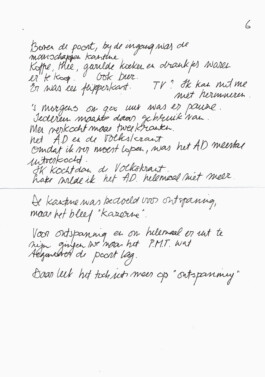 6
Boven de poort, bij de ingang was de
manschappen kantine.
Koffie, thee, gevulde koeken en drankjes waren
er te koop. Ook bier.
Er was een flipperkast. TV? Ik kan het me
niet herinneren.
's morgens om een uur was er pauze.
Iedereen maakte daar gebruik van.
Men verkocht maar twee kranten.
het AD en de Volkskrant.
Omdat ik ver moest lopen, was het AD meestal
uitverkocht.
Ik kocht dan de Volkskrant.
Later wilde ik het AD helemaal niet meer
De kantine was bedoeld voor ontspanning,
maar het bleef "kazerne".
Voor ontspanning en om helemaal er uit te
zijn gingen we naar het P.M.T. wat
tegenover de poort lag.
Daar leek het toch iets meer op "ontspanning"